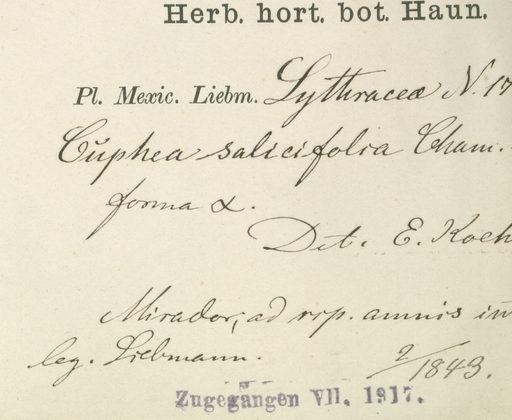 Herb. hort. bot. Haun.
Pl. Mexic. Liebm. Lythraceæ N. 17
Cuphea salicifolia Cham.
forma α.
Det. E. Koeh
Mirador, ad rip. amnis in
leg. Liebmann. 2/1843.
Zugegangen VII. 1917.